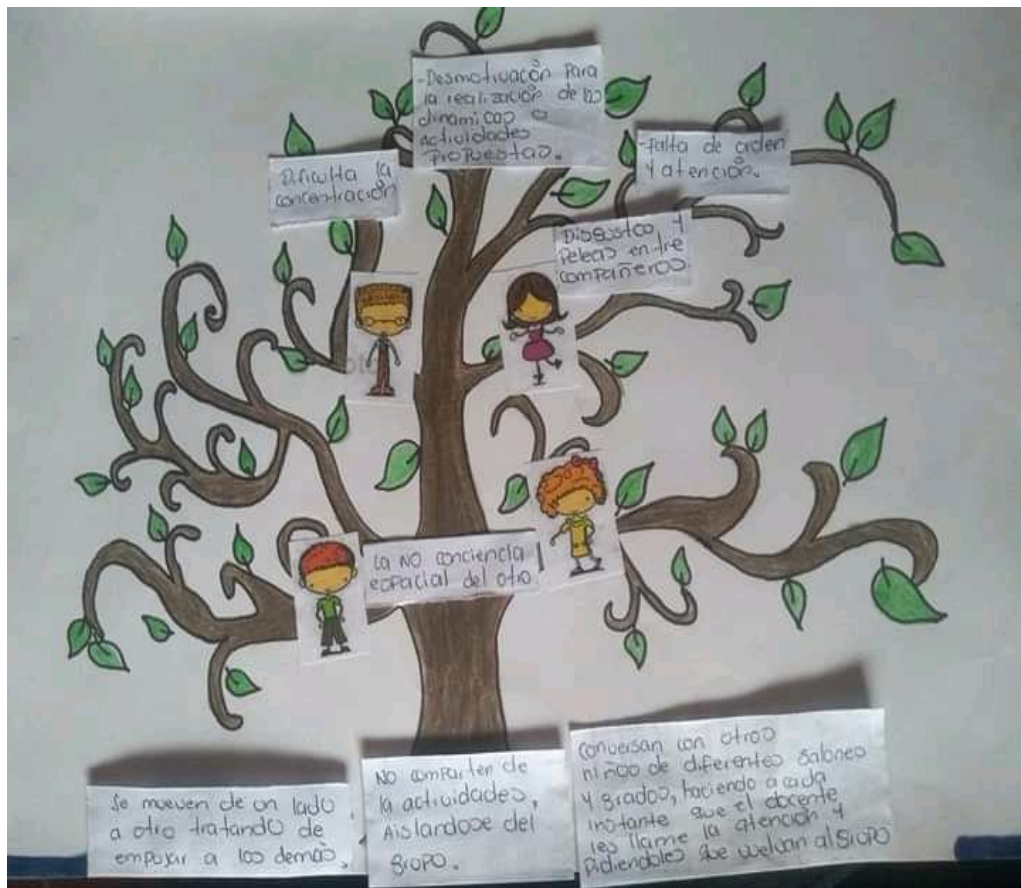 -Desmotivación Para
la realización de las
dinamicas o
actividades
Propuestas.
Dificulta la
concentración
-Falta de orden
y atención.
Disgustos y
Peleas entre
compañeros
La NO conciencia
espacial del otro
Se mueven de un lado
a otro tratando de
empujar a los demás.
No comparten de
la actividades,
Aislandose del
grupo.
conversan con otros
niños de diferentes salones
y grados, haciendo a cada
instante que el docente
les llame la atención y
Pidiendoles que vuelvan al grupo